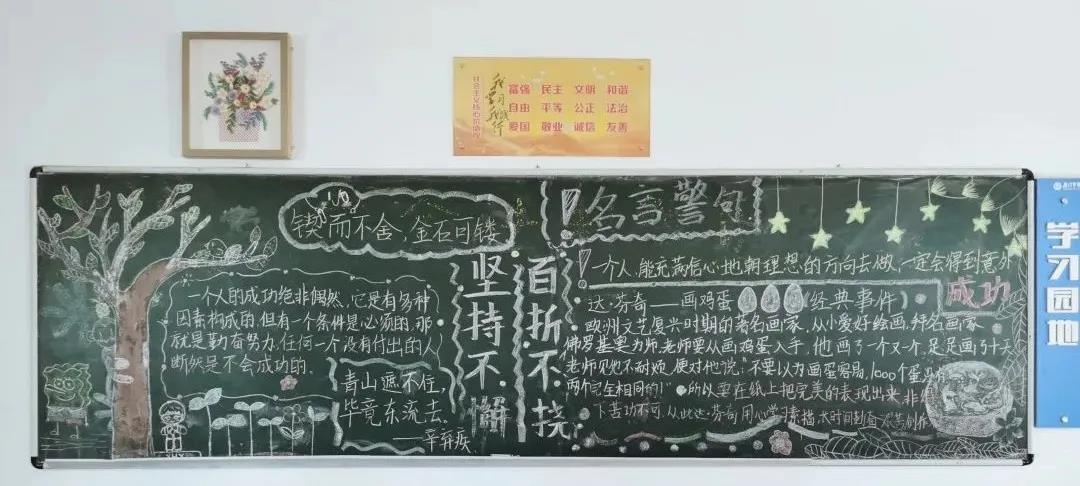 社会主义核心价值观
富强 民主 文明 和谐
自由 平等 公正 法治
爱国 敬业 诚信 友善
锲而不舍,金石可镂
一个人的成功绝非偶然,它是有多种
因素构成的,但有一个条件是必须的,那
就是勤奋努力,任何一个没有付出的人
断然是不会成功的。
青山遮不住,
毕竟东流去。
——辛弃疾
坚持不懈
百折不挠
名言警句
一个人,能充满信心地朝理想的方向去做,一定会得到意外
成功
达·芬奇——画鸡蛋(经典事件)
欧洲文艺复兴时期的著名画家,从小爱好绘画,
师,老师要从画鸡蛋入手,他画了一个又一个,足足画了十天
老师见他不耐烦,便对他说:"不要以为画蛋容易,1000个蛋
两个完全相同的!"所以要在纸上把完美的表现出来,非
下苦功不可,从此达·芬奇用心学习素描,
学习园地